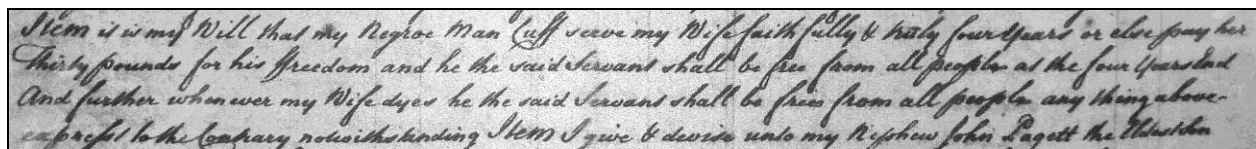 Item is is my Will that my Negroe Man Cuff serve my Wife faithfully & truly four Years or else pay her
Thirty pounds for his ffreedom and he the said Servant shall be free from all people at the four Years End
And further when ever my Wife dyes he the said Servant shall be free from all people any thing above-
exprest to the Contrary notwithstanding Item I give & devise unto my Nephew John Pagett the Eldest Son